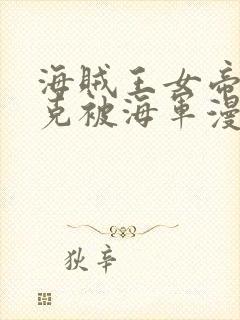 海贼王女帝
克被海军漫
狄辛